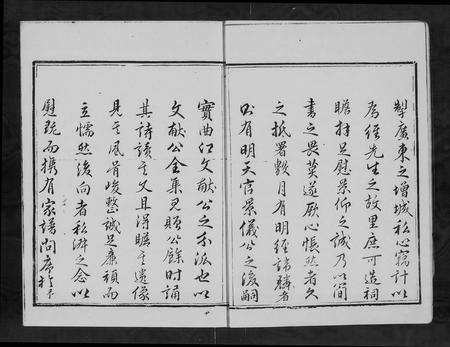 掣廣東之增城私心竊計以
為經先生之故里庶可造祠
瞻拜足慰景仰之誠乃以簡
書之畏莫遂厥心悵然者久
之抵署數月有明經諱麟者
出有明天官景儀公之後嗣
實曲江文献公之分派也以
文献公全集見贈公餘時誦
其詩讀其文且得瞻其遺像
見其風骨峻整誠足廉頑而
立懦然後向者私淑之念以
慰既而携有家譜問序于